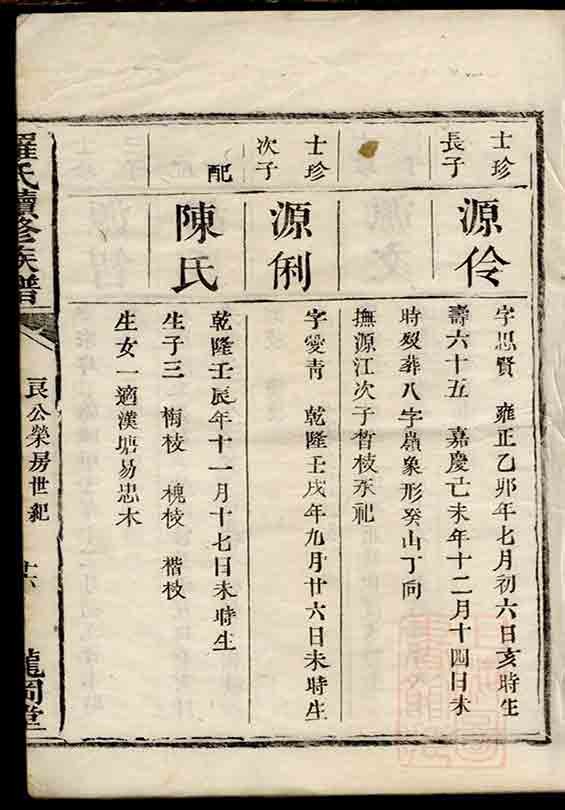 士珍
長子
源伶
字思賢 雍正乙卯年七月初六日亥時生
壽六十五 嘉慶己未年十二月十四日未
時歿葬八字嶺象形癸山丁向
撫源江次子哲枝承祀
士珍
次子
源俐
字愛青 乾隆壬戌年九月廿六日未時生
配
陳氏
乾隆壬辰年十一月十七日未時生
生子三 梅枝 槐枝 楷枝
生女一適漢塘易忠木
羅氏續修族譜
良公榮房世紀
廿六
龍岡堂